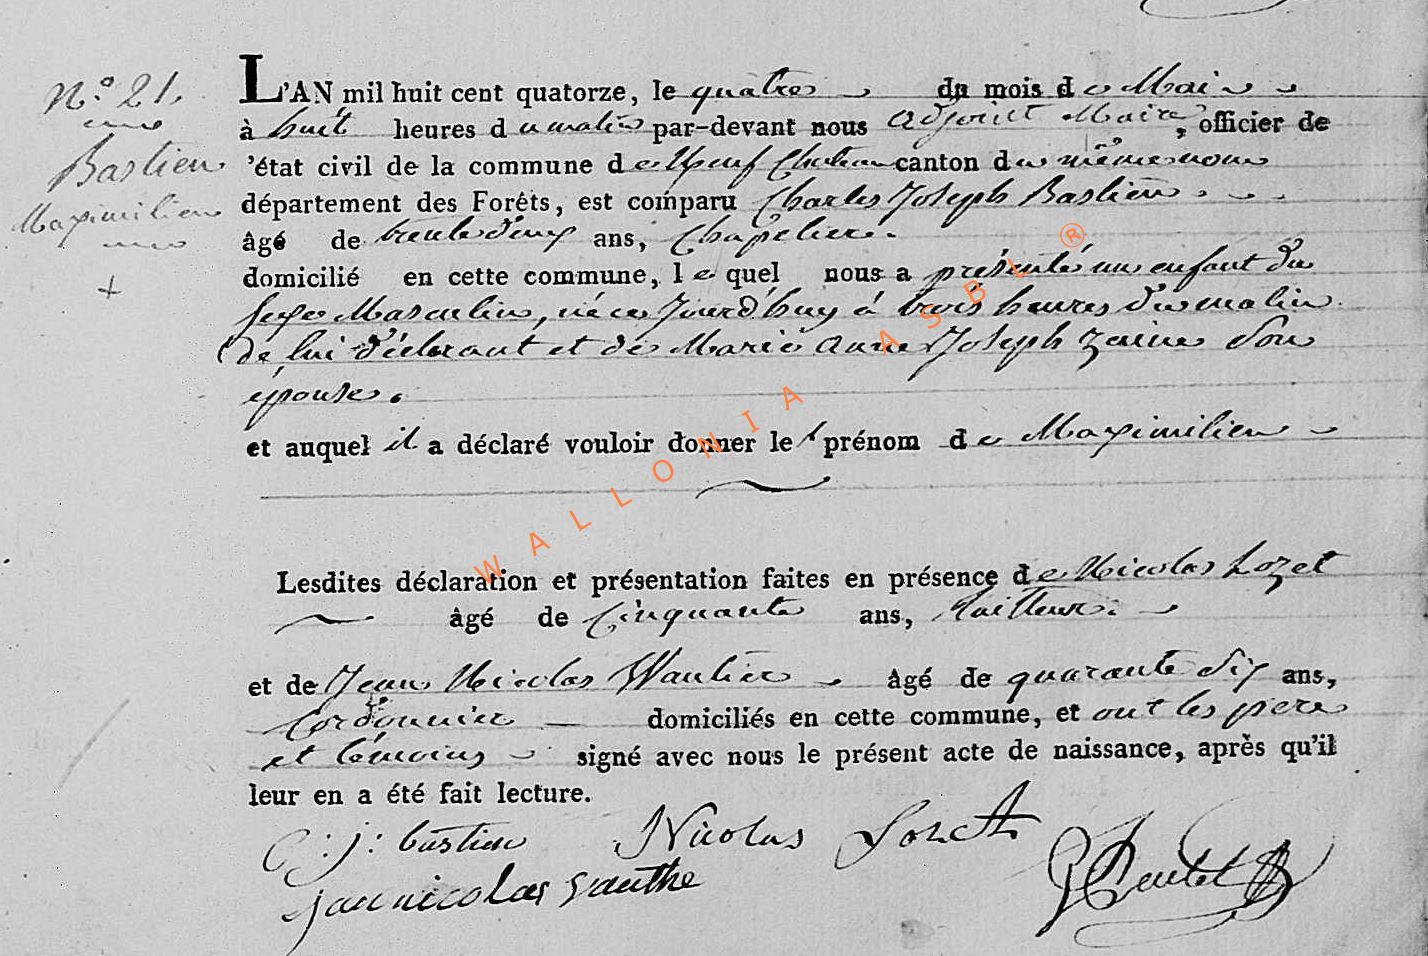 N.º 21.
Bastien
Maximilien
L'AN mil huit cent quatorze, le quatre du mois de Mai
à huit heures du matin par-devant nous adjoint Maire, officier de
'état civil de la commune de Neuf Chateau canton du même nom
département des Forêts, est comparu Charles Joseph Bastien
âgé de trente deux ans, Chapelier.
domicilié en cette commune, le quel nous a présenté un enfant du
sexe Masculin, né ce jourd'huy à trois heures du matin
de lui déclarant et de Marie anne Joseph zaine Son
épouse.
et auquel il a déclaré vouloir donner le prénom de Maximilien
Lesdites déclaration et présentation faites en présence de Nicolas Lozet
âgé de Cinquante ans, tailleur.
et de Jean Nicolas Wautier âgé de quarante Six ans,
Cordonnier domiciliés en cette commune, et ont les pere
et témoins signé avec nous le présent acte de naissance, après qu'il
leur en a été fait lecture.
C: j: bastien Nicolas
jean nicolas
WALLONIA ASBL ®